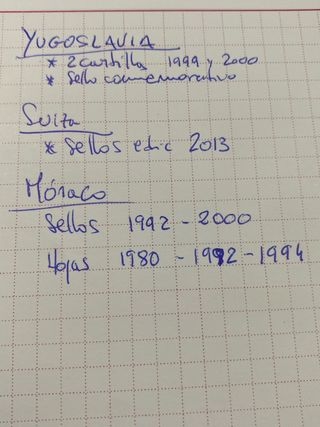 YUGOSLAVIA
* 2 cartillas 1999 y 2000
* Sello conmemorativo
Suiza
* Sellos edic 2013
Mónaco
Sellos 1992 - 2000
Hojas 1980 - 1992 - 1994